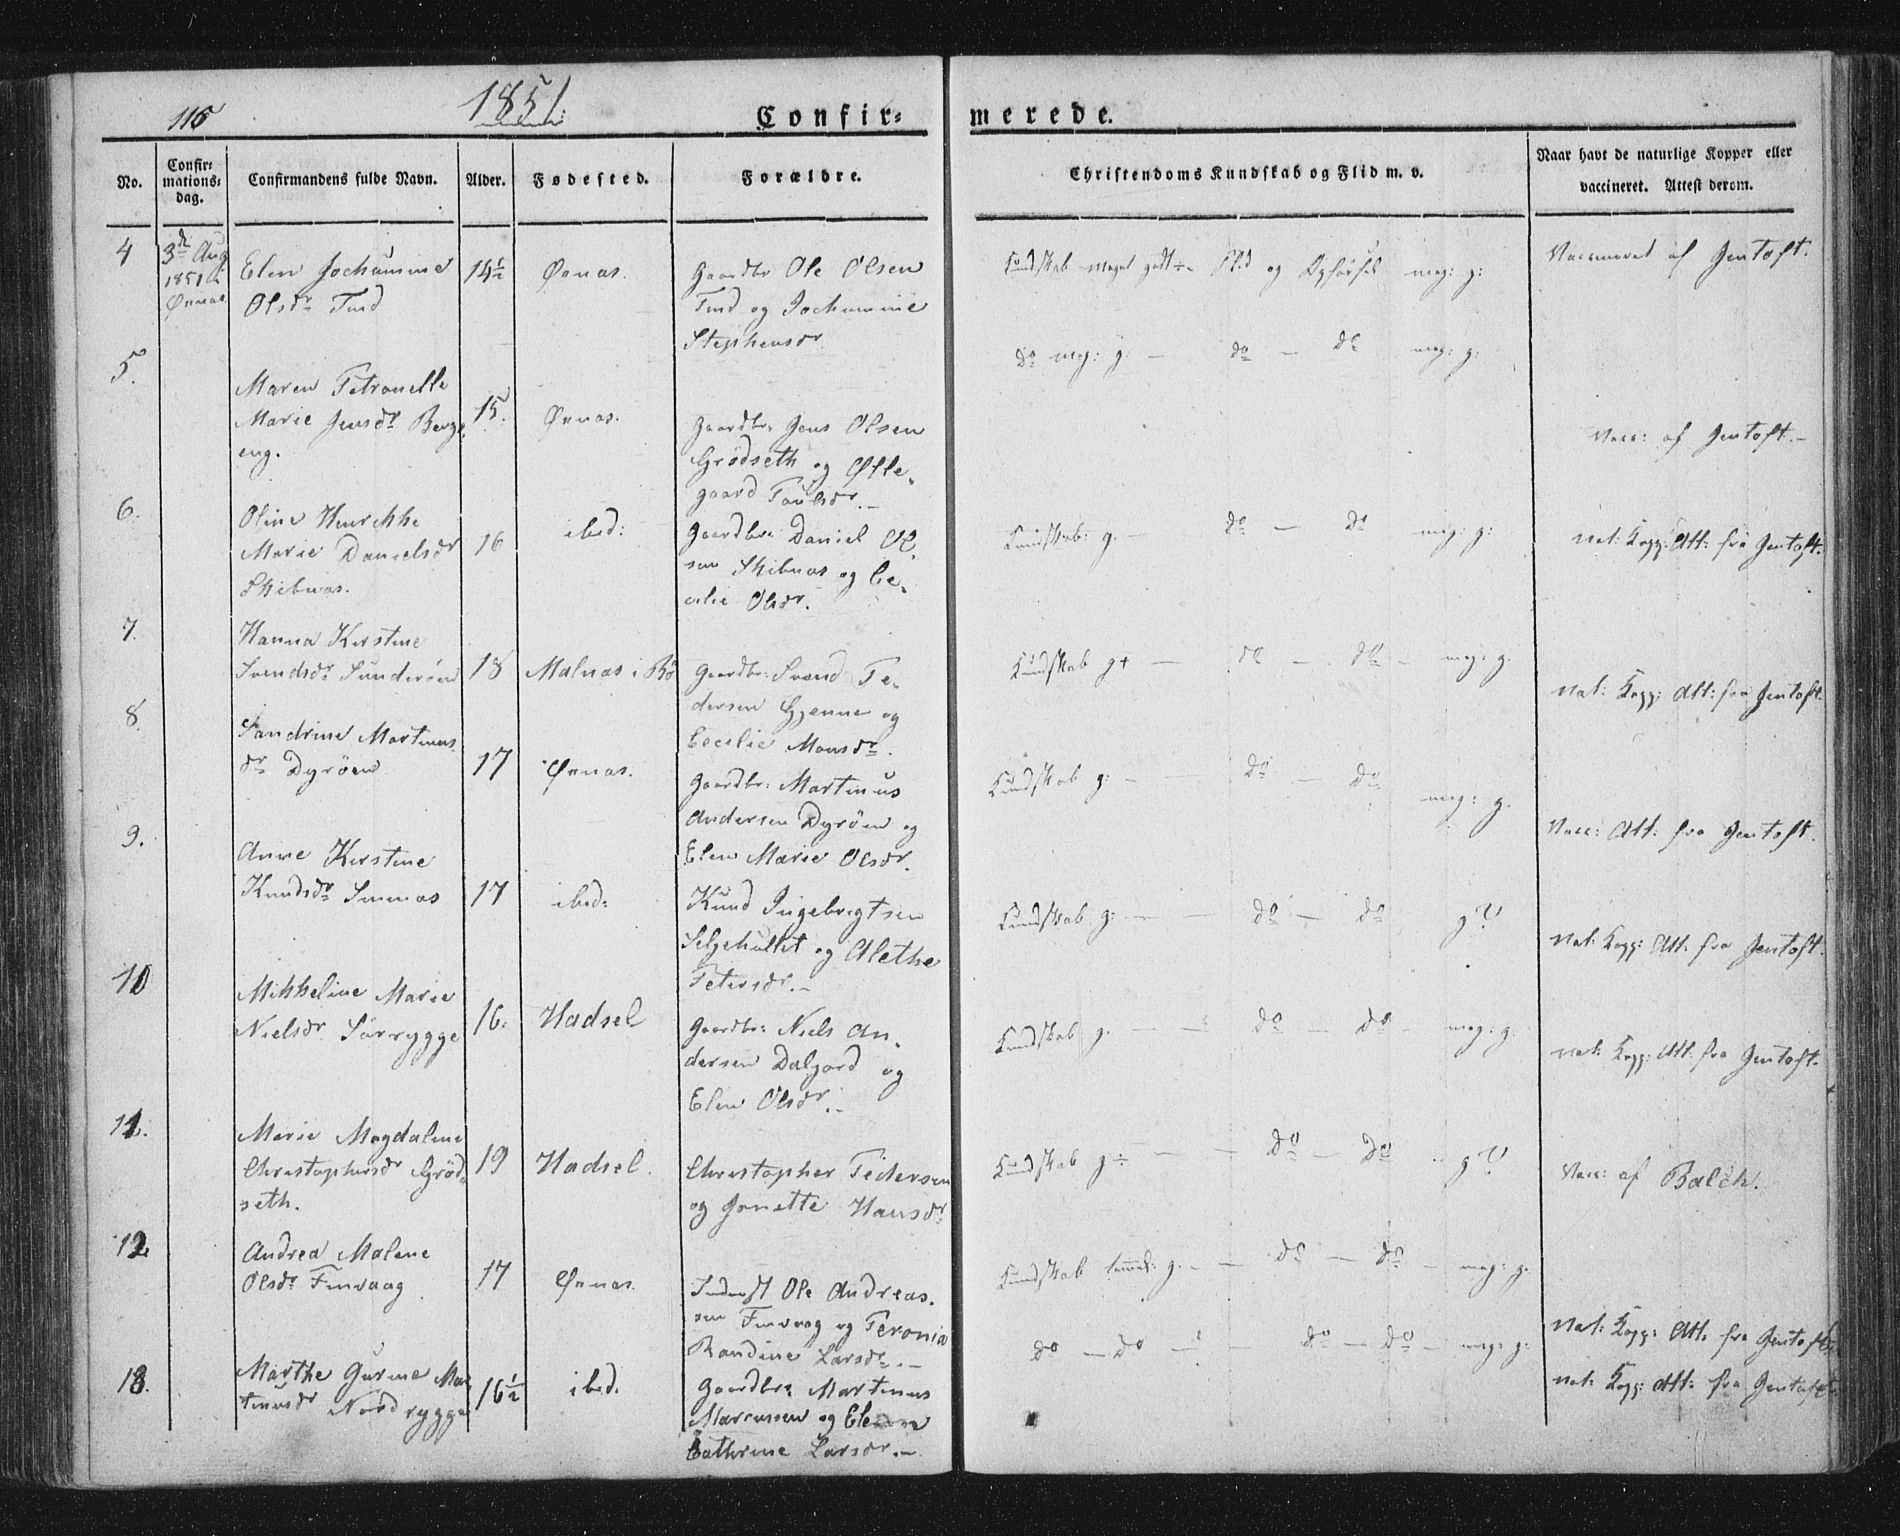 116
1851.
Confir-
merede.
No.
Confir-
mations-
dag.
Confirmandens fulde Navn.
Alder.
Fødested.
Forældre.
Christendoms Kundskab og Flid m. v.
Naar havt de naturlige Kopper eller
vaccineret. Attest derom.
4
3de Aug
1851 i
Øxnæs
Elen Jochumine
Olsdr Tind
14½
Øxnæs.
Gaardbr Ole Olsen
Tind og Jochumine
Stephensdr
Kundskab meget godt ÷. Flid og Opførsel meg: g:
Vaccineret af Jentoft.
5.
Maren Petronelle
Marie Jensdr Berge
eng.
15.
Øxnæs.
Gaardbr: Jens Olsen
Grødseth og Olle-
gaard Paulsdr.-
do meg: g: — do — do meg: g:
Vacc: af Jentoft.-
6.
Oline Henrikke
Marie Danielsdr
Skibnæs.
16
ibid:
Gaardbr: Daniel Ol-
sen Skibnæs og Ce-
cilie Olsdr.
Kundskab: g. — do — do meg: g:
nat: Kopp: Att: fra Jentoft.
7.
Hanna Kirstine
Svendsdr Sunderöen
18
Malnæs i Bø
Gaardbr: Svend Pe-
dersen Gjenne og
Cecilie Monsdr.
Kundskab g+ — do — do — meg: g.
nat: Kopp: Att: fra Jentoft.
8.
Sandrine Martinus
dr Dyröen
17
Øxnæs.
Gaardbr: Martinus
Andersen Dyröen og
Elen Marie Olsdr.
Kundskab g: — — do — do
meg: g.
Vacc: Att: fra Jentoft.
9.
Anne Kirstine
Knudsdr Smines
17
ibid:
Knud Ingebrigtsen
Selgehultet og Alethe
Petersdr.-
Kundskab g: — — do — do g?
Nat: Kopp: Att: fra Jentoft.
10
Mikkeline Marie
Nielsdr Sörrygge
16.
Hadsel
Gaardbr: Niels An-
dersen Dalgard og
Elen Olsdr.-
Kundskab g. — — do — do — meg: g.
nat: Kopp: Att: fra Jentoft.
11.
Marie Magdalene
Christophersdr Gröd-
seth.
19
Hadsel.
Christopher Pedersen
og Jonette Hansdr
Kundskab g÷ — — do — do g?
Vacc: af Balck.
12
Andrea Malene
Olsdr Finvaag
17
Øxnæs.
Inderst Ole Andreas-
sen Finvaag og Peronia
Randine Larsdr.-
Kundskab temmel: g. — — do — do — meg: g.
nat: Kopp: Att. fra Jentoft
13.
Marthe Gurine Mar-
tinusdr Nordrygge
16½
ibid.
Gaardbr: Martinus
Marcussen og Elen
Cathrine Larsdr.-
do — do — do — do — meg: g:
nat: Kopp: Att: fra Jentoft